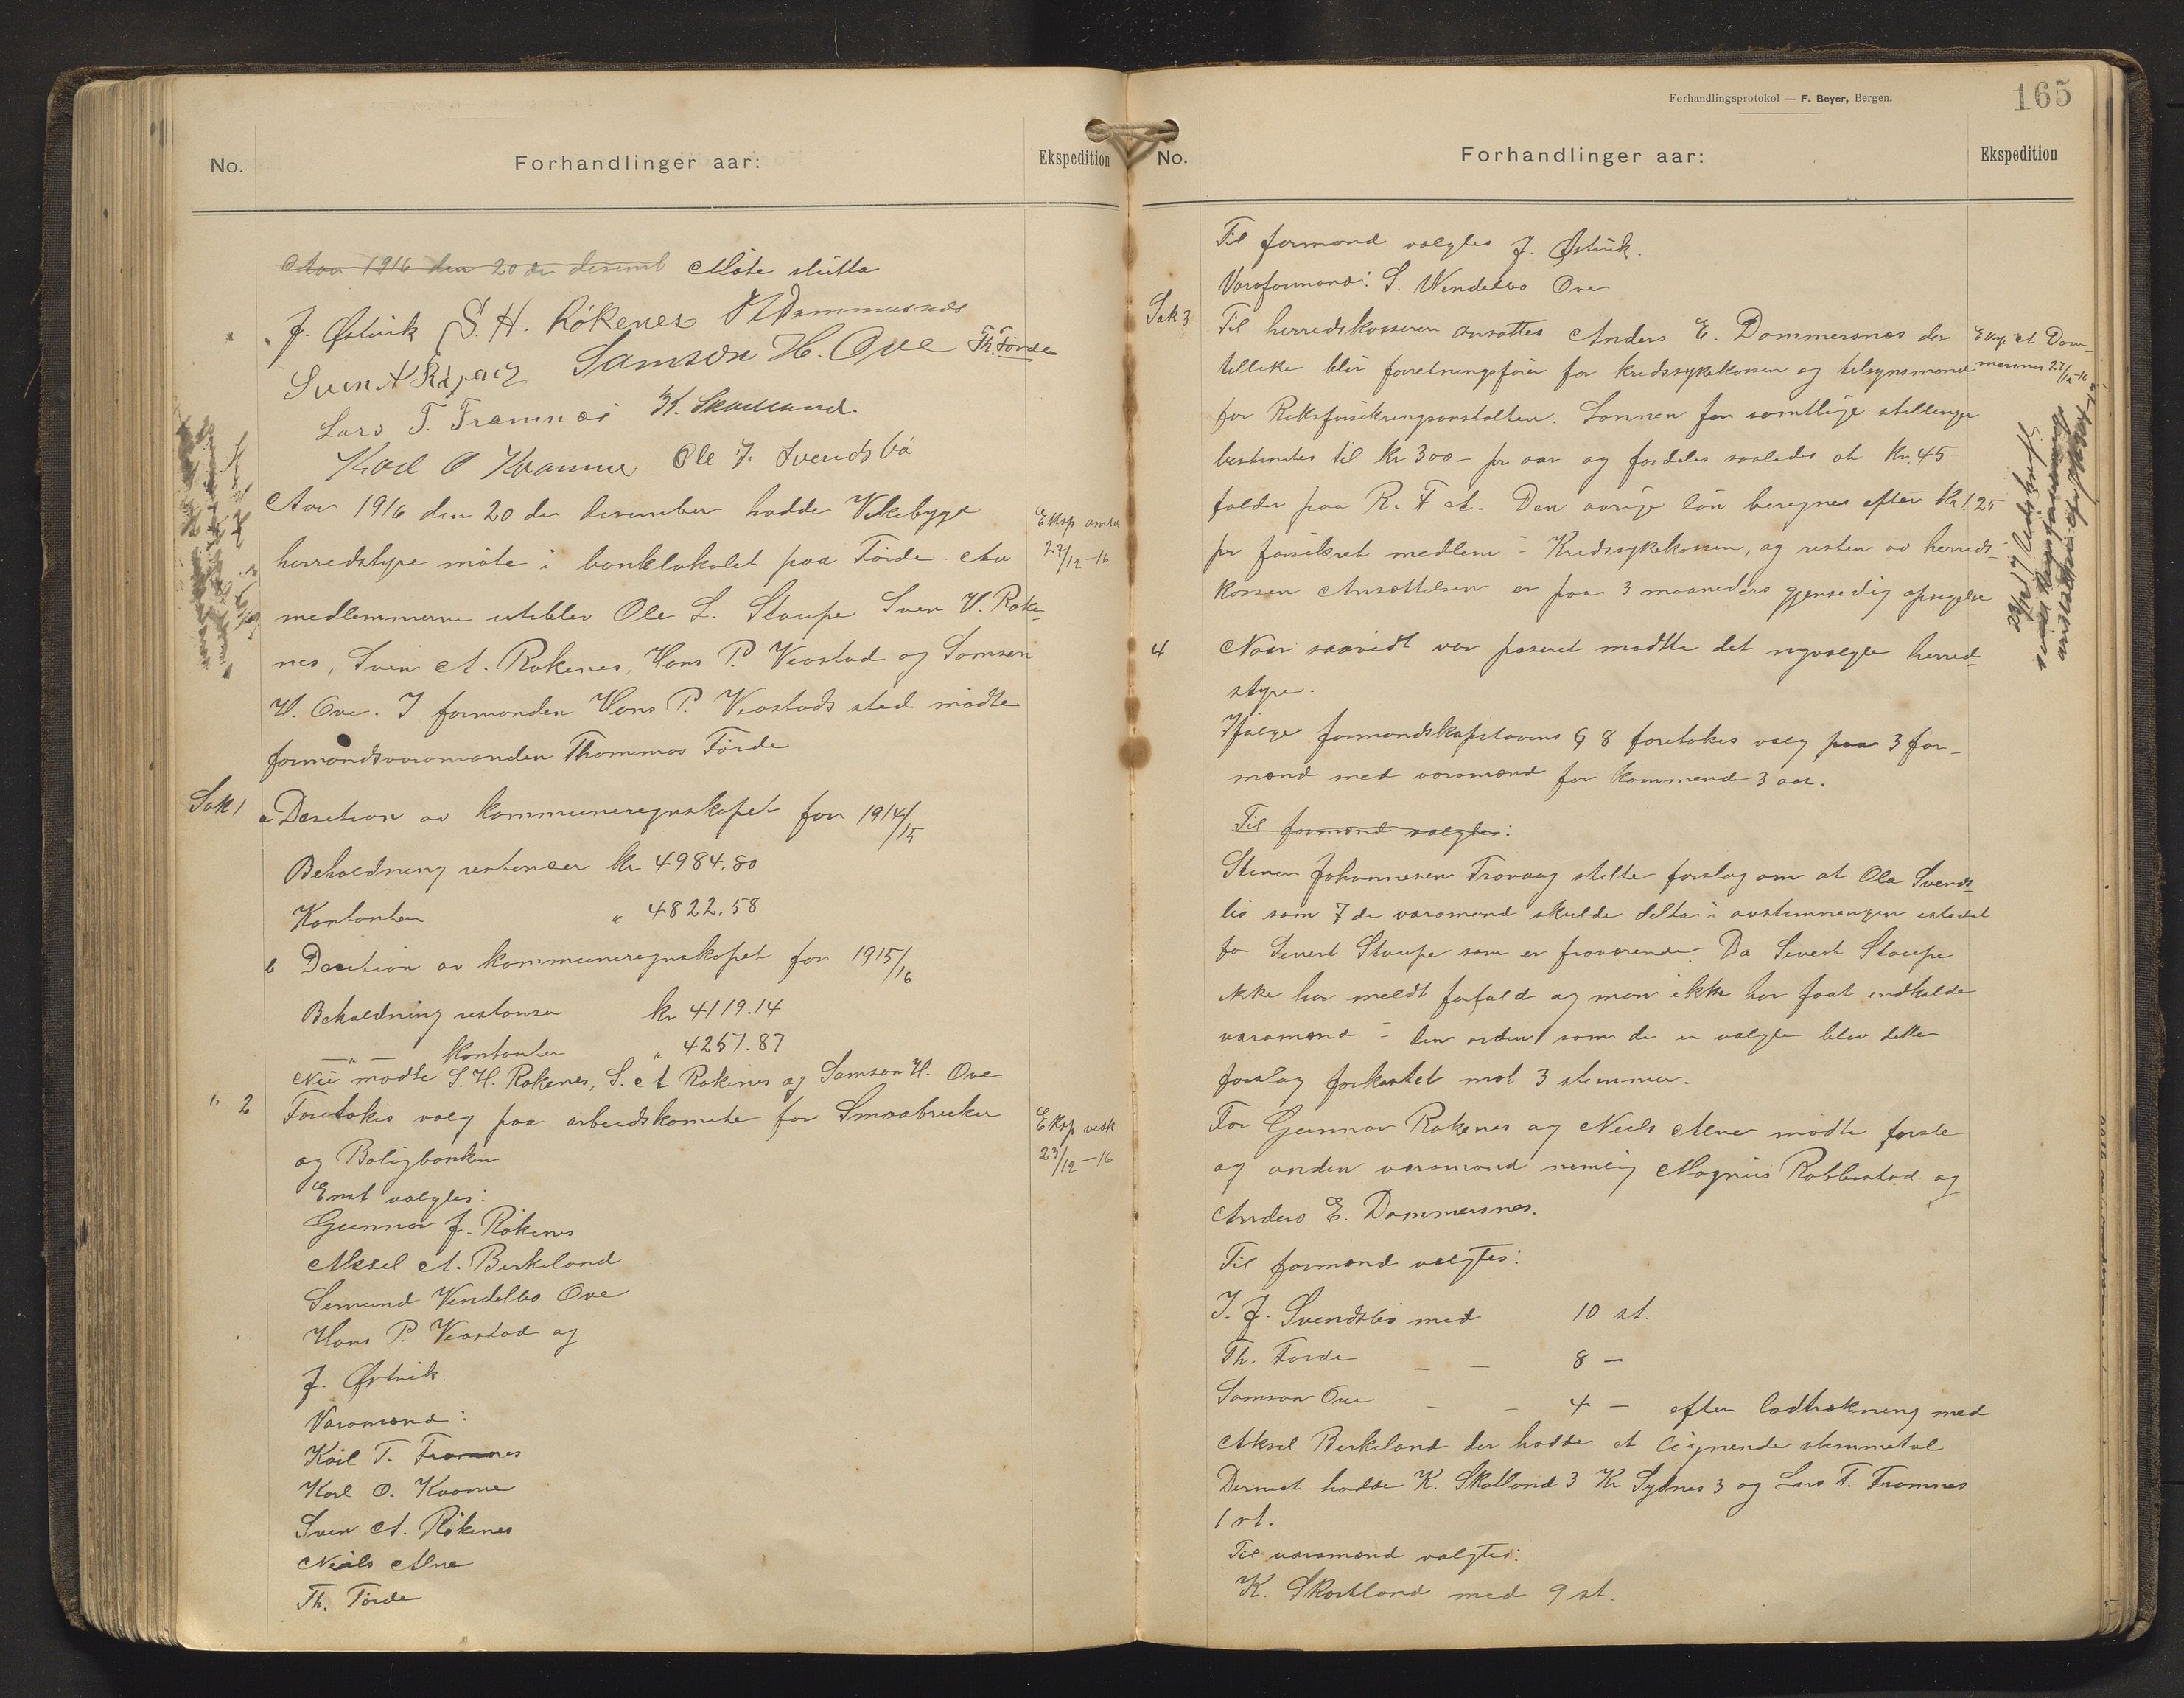 No.
Forhandlinger aar:
Ekspedition
Aar 1916 den 20 de desemb Møte slutta
J. Østvik S. H. Rökenes
Samson H. Ove Th. Förde
Lars T. Framnes K. Skartland.
Karl O Kvamme Ole J. Svendsbö
Aar 1916 den 20 de desember hadde Vikebygd
herredstyre möte i banklokalet paa Förde. Av
medlemmerne uteblev Ole L. Staupe Sven H. Röke-
nes, Sven A. Rökenes, Hans P. Veastad og Samson
H. Ove. I formanden Hans P. Veastads sted mödte
formandsvaramanden Thommas Förde
Eksp amtet
27/12-16
Sak 1
a Desition av kommuneregnskapet for 1914/15
Beholdning restancer kr 4984.80
Kontanter " 4822.58
b Desition av kommuneregnskapet for 1915/16
Beholdning restanser kr 4119.14
—"— kontanter " 4251.87
Nu mödte S. H. Rökenes, S. A Rökenes og Samson H. Ove
" 2
Foretokes valg paa arbeidskomite for Smaabruker
og Boligbanken
Eksp vedk
23/12-16
Enst valgtes:
Gunnar J. Rökenes
Aksel A. Birkeland
Semund Vendelbo Ove
Hans P. Veastad og
J. Østvik.
Varamænd:
Karl T. Framnes
Karl O. Kvame
Sven A. Rökenes
Neils Alne
Th. Förde
Forhandlingsprotokol — F. Beyer, Bergen.
165
No.
Forhandlinger aar:
Ekspedition
Til formand valgtes J. Østvik.
Varaformand: S. Wendelbo Ove
Sak 3
Til herredskasserer ansattes Anders E. Dommersnes der
tillike blir forretningsförer for kredssykekassen og tilsynsmand
for Riksforsikringsanstalten. Lönnen for samtlige stillinger
bestemtes til kr 300- pr aar og fordeles saaledes at kr. 45
falder paa R. F A. Den övrige lön beregnes efter kr 1.25
pr forsikret medlem i Kredssykekassen, og resten av herreds-
kassen Ansættelsen er paa 3 maaneders gjensedig opsigelse
Eksp A Dom-
mersnes 27/12-16
4
Naar saavidt var passeret mødtte det nyvalgte herred-
styre.
Ifölge formandskapslovens § 8 foretokes valg paa 3 for-
mænd med varamænd for kommende 3 aar.
Til formænd valgtes:
Steinar Johannesen Trovaag stilte forslag om at Ola Svends-
bö som 7 de varamand skulde delta i avstemningen istedet
for Severt Staupe som er fraværende. Da Severt Staupe
ikke har meldt forfald og man ikke har faat indkalde
varamænd i den orden som de er valgte blev dette
forslag forkastet mot 3 stemmer.
For Gunnar Rökenes og Neils Alne mödte förste
og anden varamand nemlig Magnus Robberstad og
Anders E. Dommersnes.
Til formænd valgtes:
I. J. Svendsbö med 10 st.
Th. Förde — — 8 —
Samson Ove — — 4 — efter lodtrekning med
Aksel Birkeland der hadde et lignende stemmetal
Dernest hadde K. Skartland 3 Kr Sydnes 3 og Lars T. Framnes
1 st.
Til varamænd valgtes:
K. Skartland med 9 st.